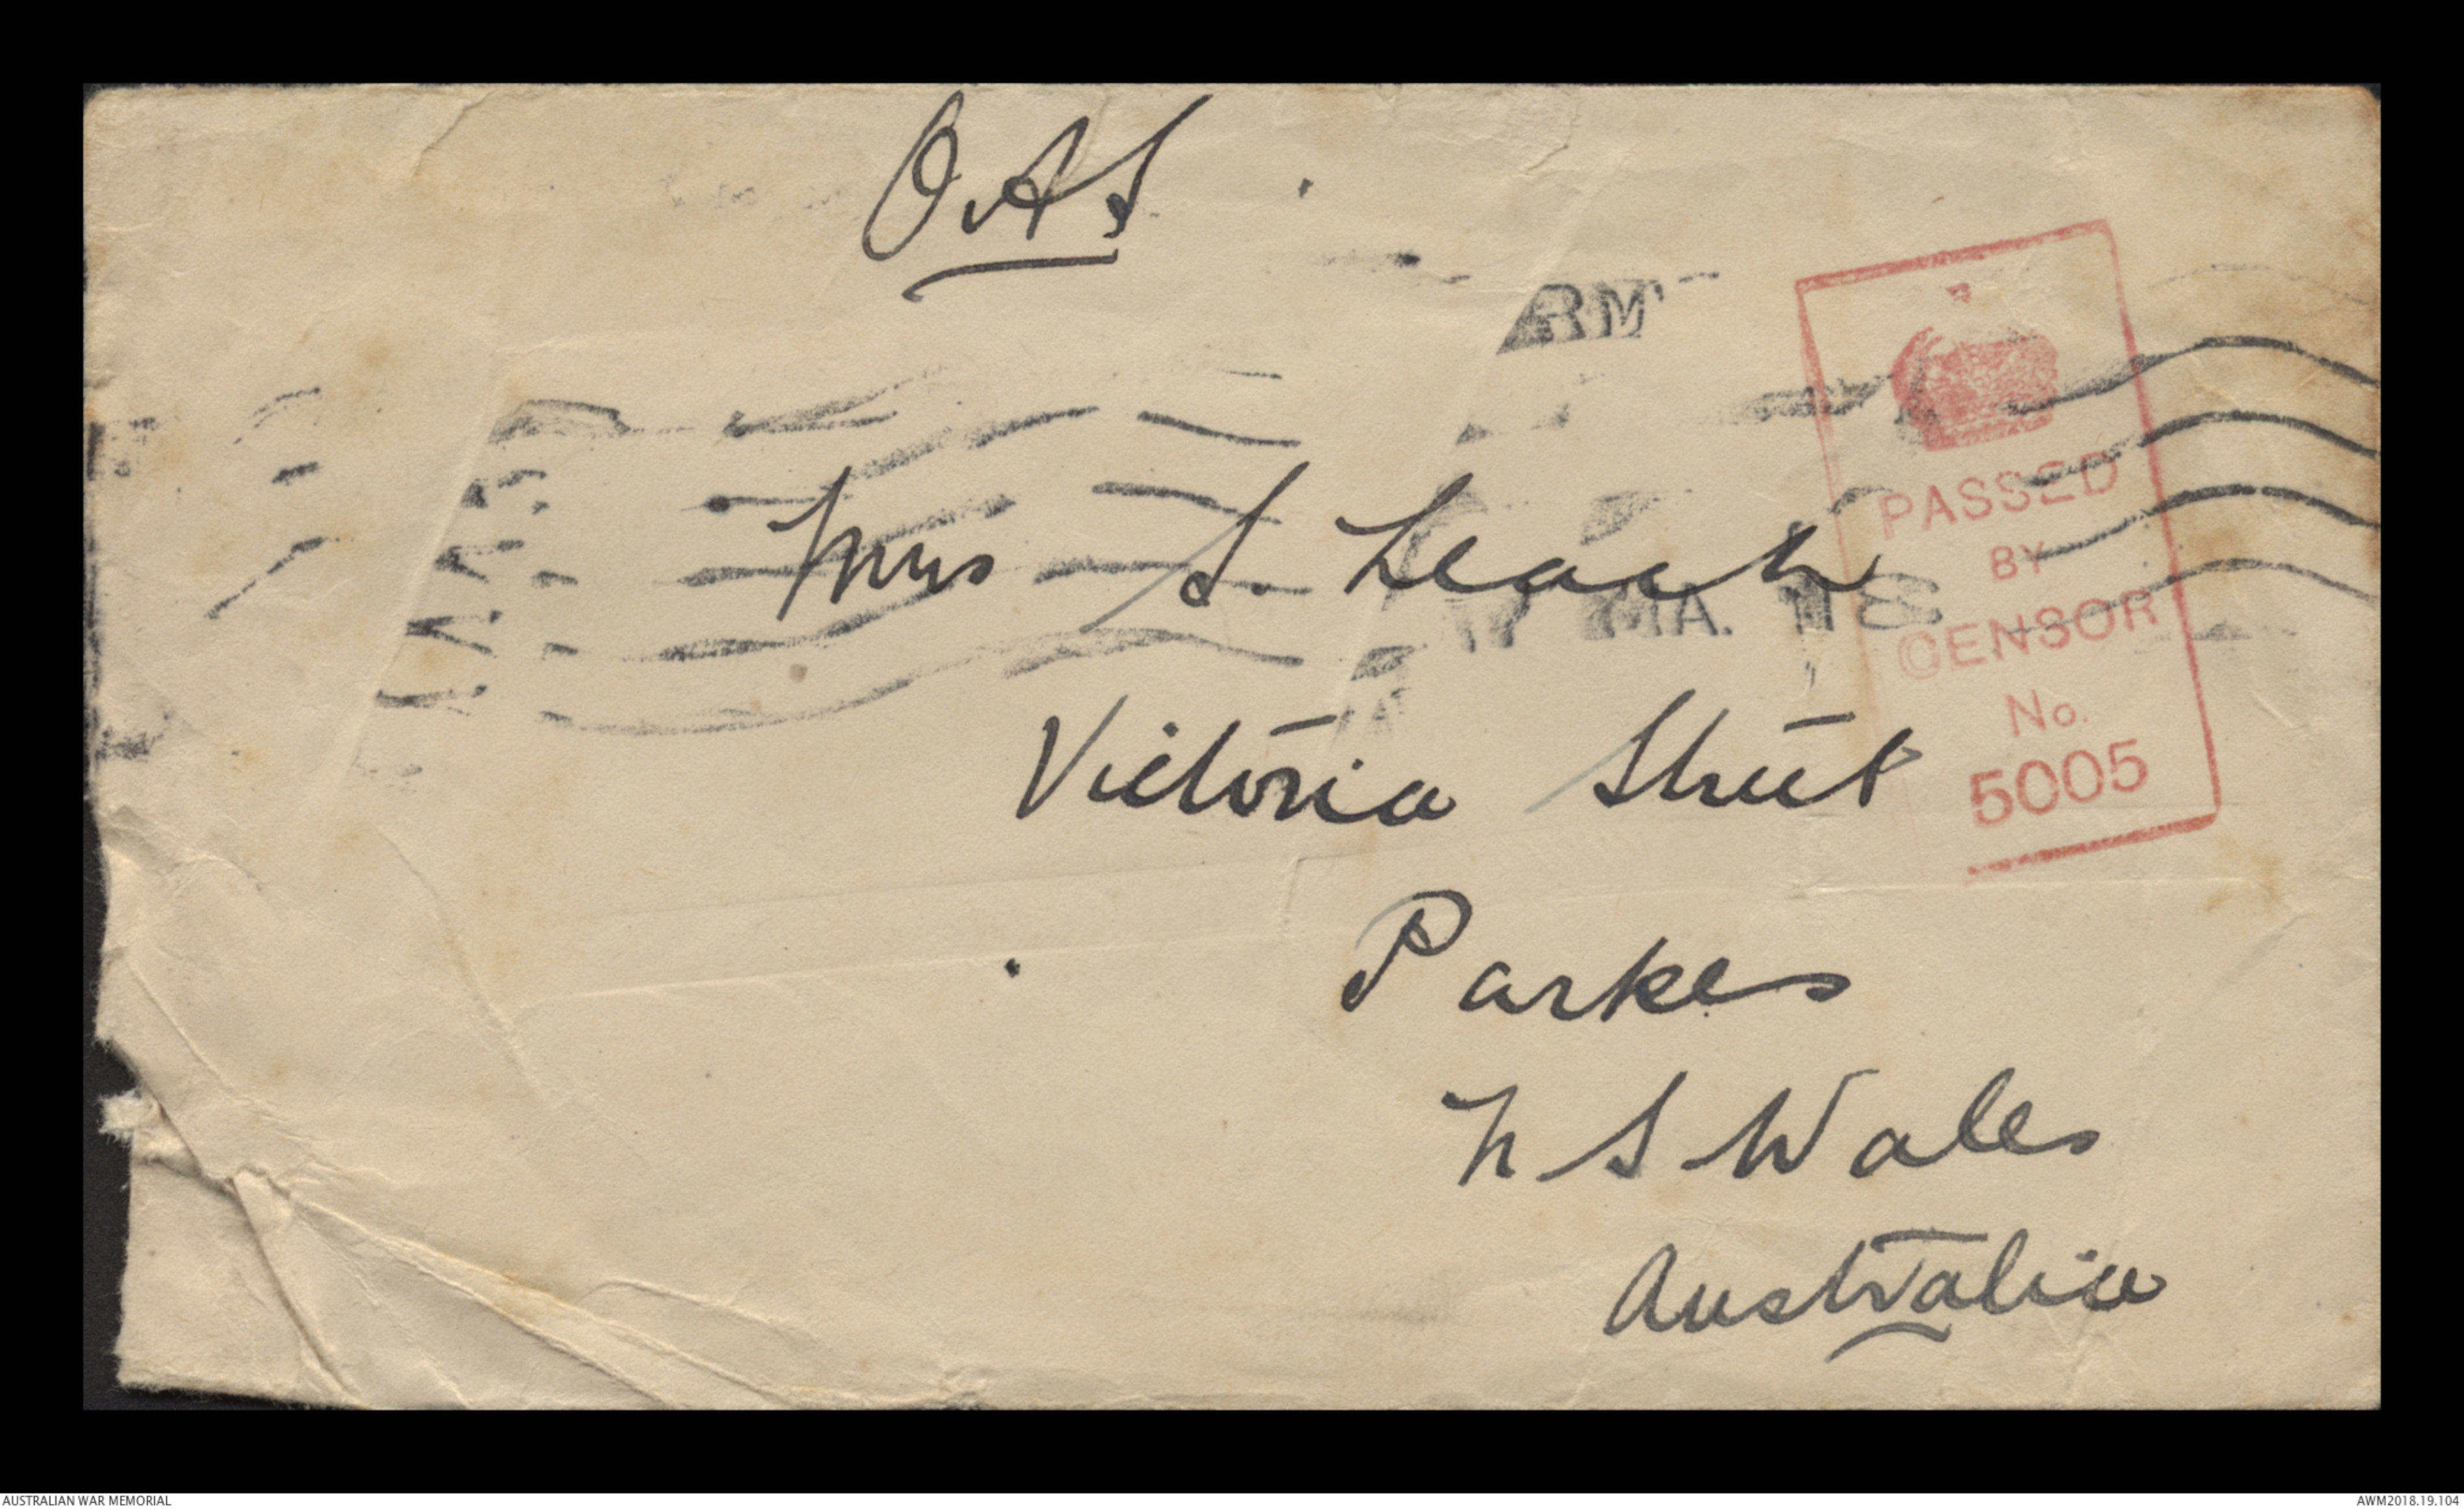 OAS
Mrs S. Leach
Victoria Street
Parkes
N S Wales
Australia
PASSED
BY
CENSOR
No.
5005
AUSTRALIAN WAR MEMORIAL
AWM2018.19.104